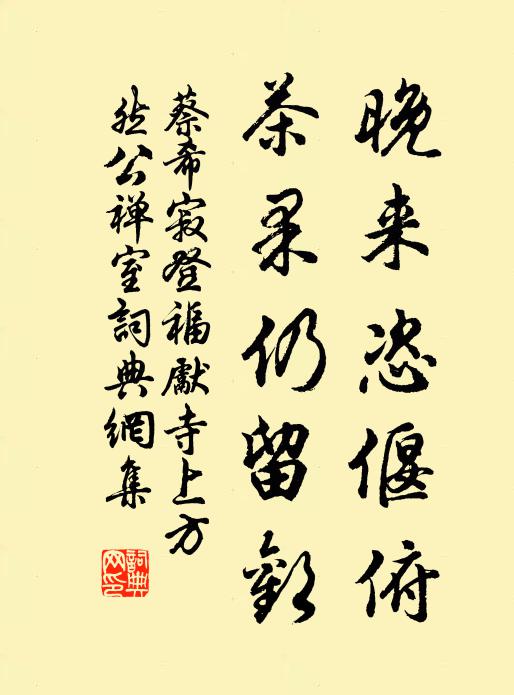 晚来恣偃俯
茶果仍留歡
蔡希寂登福獻寺上方
然公禅室詞典網集
詞典网印